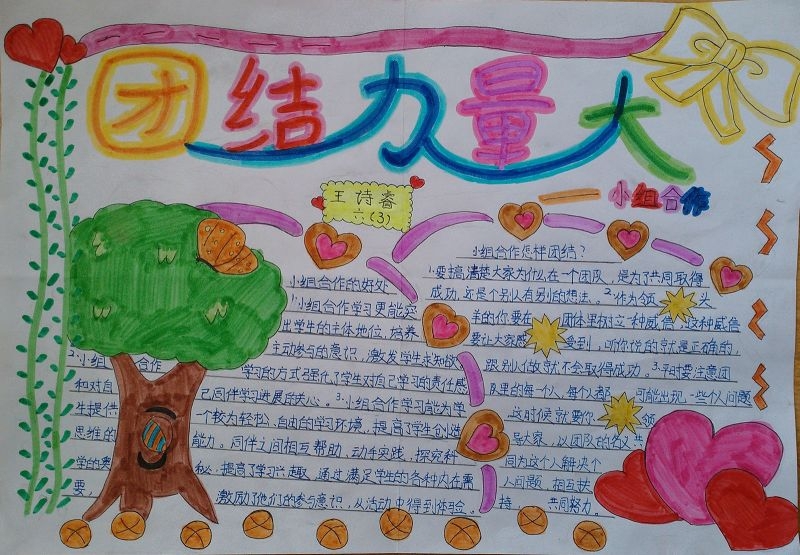 团结力量大
——小组合作
王诗睿
六(3)
小组合作的好处
1.小组合作学习更能突
出学生的主体地位,培养
主动参与的意识,激发学生求知欲
2.小组合作学习的方式强化了学生对自己学习的责任感
和对自己同伴学习进展的关心。3.小组合作学习能为学
生提供一个较为轻松、自由的学习环境,提高了学生创造
思维的能力。同伴之间相互帮助,动手实践,探究科
学的奥秘,提高了学习兴趣,通过满足学生的各种内在需
要,激励了他们的参与意识,从活动中得到体验。
小组合作怎样团结?
1.要搞清楚大家为什么在一个团队,是为了共同取得
成功,还是个别人有别的想法。2.作为领头
羊的你要在团体里树立一种威信,这种威信
要让大家感受到,听你说的就是正确的,
跟别人做就不会取得成功。3.平时要注意团
队里的每一人,每个人都可能出现一些个人问题
这时候就要你领
导大家,以团队的名义共
同为这个人解决个
人问题,相互扶
持,共同努力。